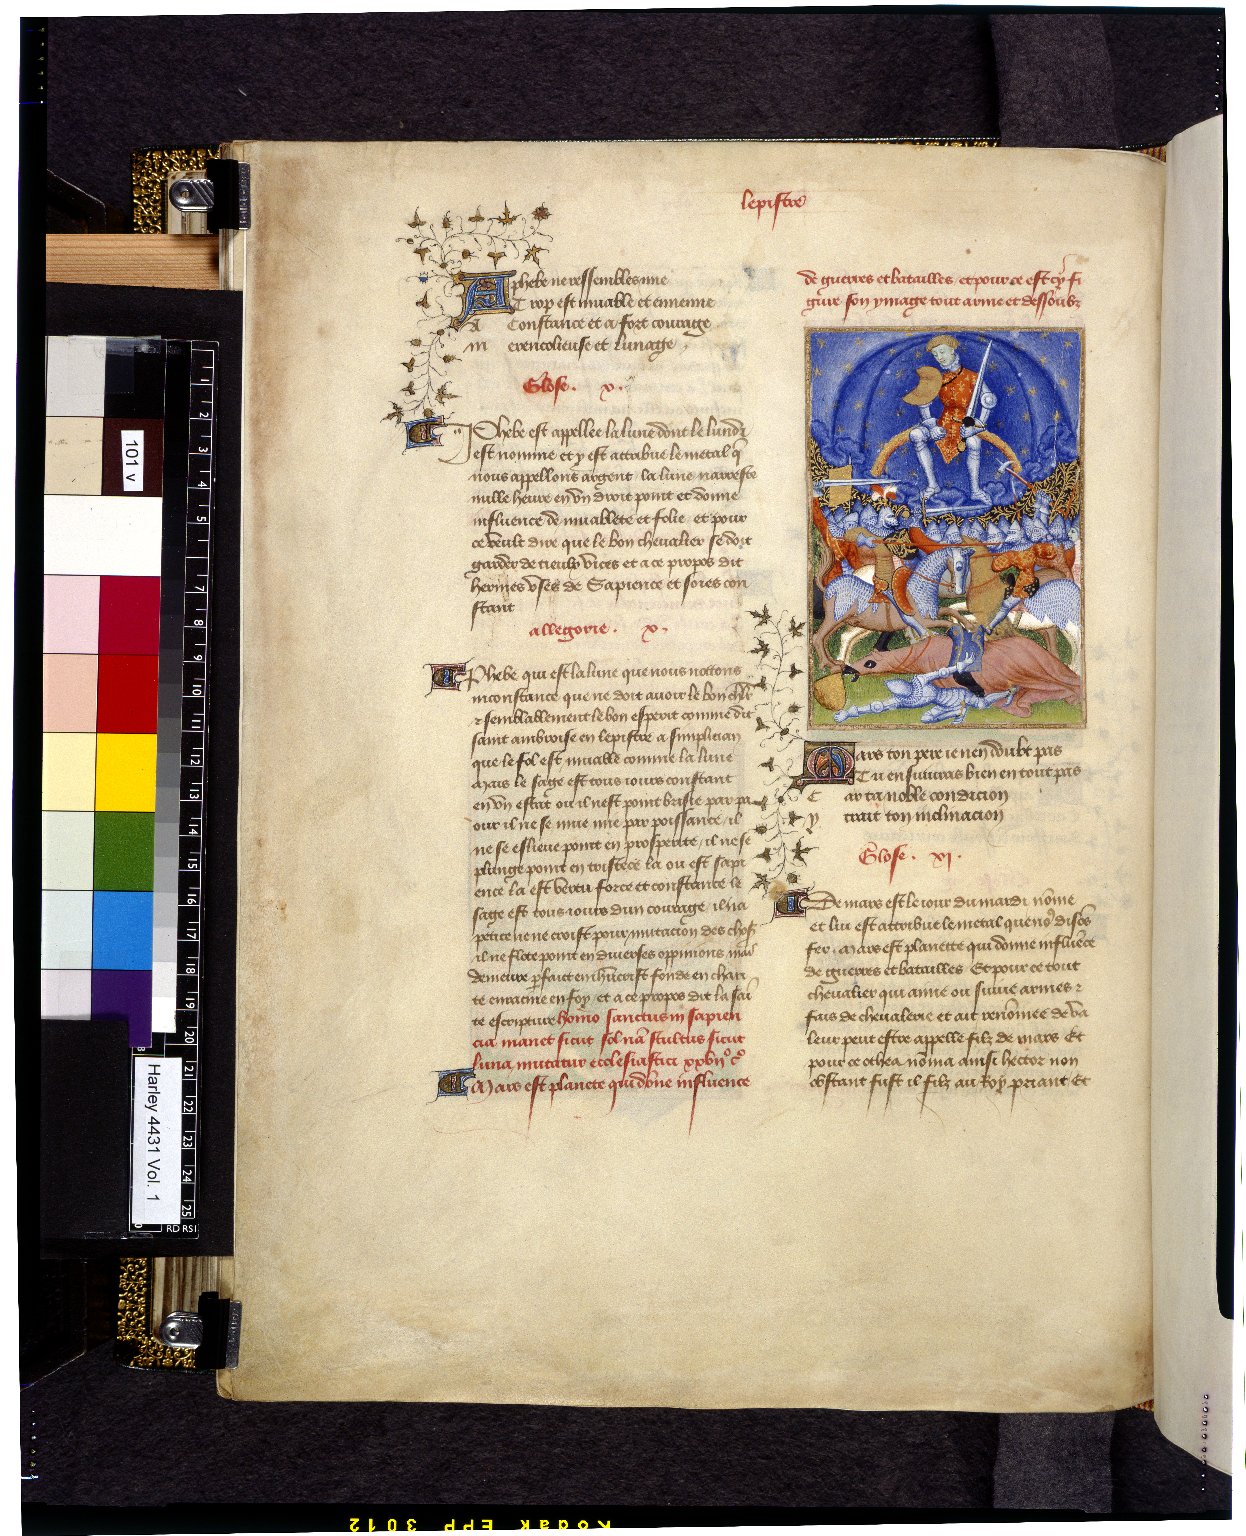 lepistre
A phebe ne ressembles mie
Trop est muable et ennemie
A Constance et a fort courage
merencolieuse et lunage
Glose . x .
Phebe est appellee la lune dont le lundi
est nomme et y est attribue le metal q̃
nous appellons argent la lune narreste
nulle heure en vn droit point et donne
influence de muablete et folie et pour
ce veult dire que le bon cheualier se doit
garder de tieulx vices et a ce propos dit
hermes vses de Sapience et soies con
stant
allegorie . x .
Phebe qui est la lune que nous nottons
inconstance que ne doit auoir le bon chlr̃
et semblablement le bon esperit comme dit
saint ambroise en lepistre a simplician
que le fol est muable comme la lune
Mais le sage est tous iours constant
en vn estat ou il nest point brisie par pa
our il ne se mue mie par poissance / il
ne se eslieue point en prosperite / il ne se
plunge point en tristece la ou est sapi
ence la est vertu force et constance le
sage est tous iours dun courage / il na
petice ne ne croist pour mutacion des chos
il ne flote point en diuerses oppinions mais
demeure p̃fait en ih̃ucrist fonde en chari
te enracine en foy et a ce propos dit la sai
te escripture homo sanctus in sapien
cia manet sicut sol nã stultus sicut
luna mutatur ecclesiastici xxvii° c°
Mars est planete qui dõne influence
de guerres et batailles et pour ce est cy fi
gure son ymage tout arme et dessoubz
Mars ton pere ie nen doubt pas
Tu ensuiuras bien en tout pas
Car ta noble condicion
y trait ton inclinacion
Glose . xi .
De mars est le iour du mardi nõme
et lui est attribue le metal que no9 disõs
fer . Mars est planette qui donne influẽce
de guerres et batailles Et pour ce tout
cheualier qui aime ou suiue armes et
fais de cheualerie et ait renõmee de va
leur peut estre appelle filz de mars Et
pour ce othea nõma ainsi hector non
obstant fust il filz au Roy priant Et
101 v
Harley 4431 Vol. 1
1
2
3
4
5
6
7
8
9
10
11
12
13
14
15
16
17
18
19
20
21
22
23
24
25
RD RSI
Kodak EPP 3012